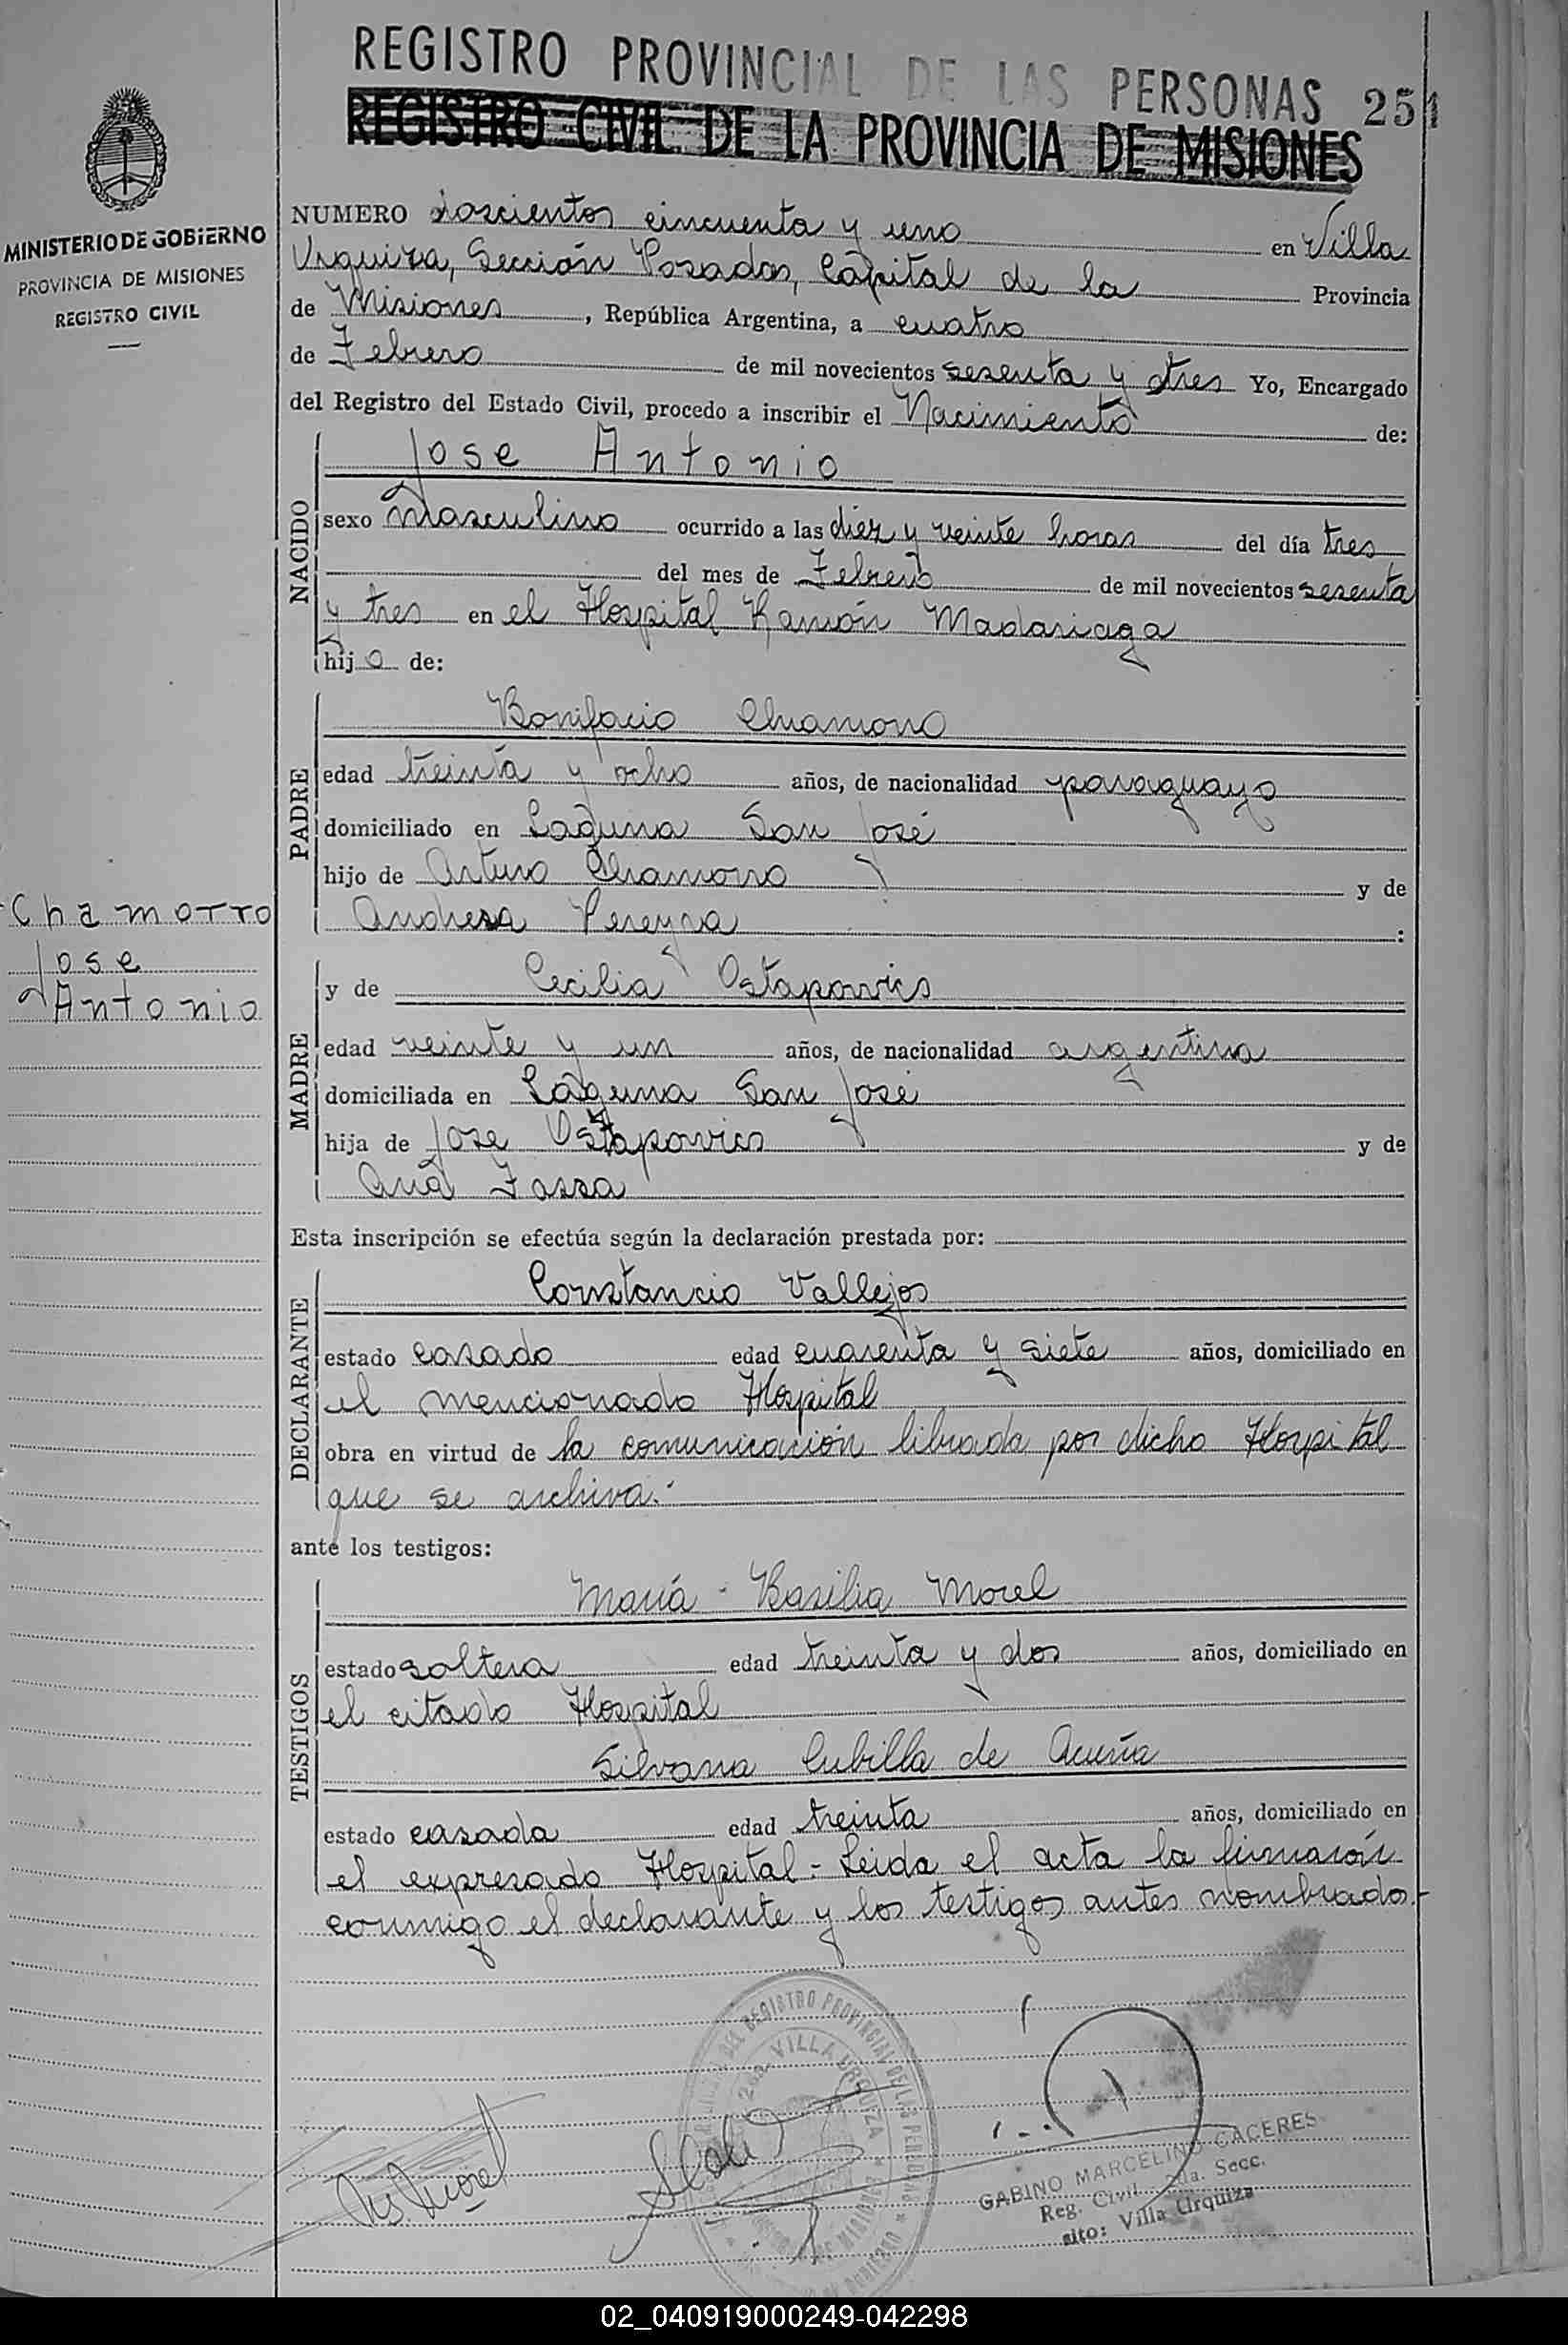 REGISTRO PROVINCIAL DE LAS PERSONAS 251
REGISTRO CIVIL DE LA PROVINCIA DE MISIONES
MINISTERIO DE GOBIERNO
PROVINCIA DE MISIONES
REGISTRO CIVIL
NUMERO doscientos cincuenta y uno en Villa
Urquiza, Sección Posadas, Capital de la Provincia
de Misiones, República Argentina, a cuatro
de Febrero de mil novecientos sesenta y tres Yo, Encargado
del Registro del Estado Civil, procedo a inscribir el Nacimiento de:
Jose Antonio
NACIDO
sexo masculino ocurrido a las diez y veinte horas del día tres
del mes de Febrero de mil novecientos sesenta
y tres en el Hospital Ramón Madariaga
hijo de:
Bonifacio Chamorro
PADRE
edad treinta y ocho años, de nacionalidad paraguayo
domiciliado en Laguna San José
hijo de Arturo Chamorro y de
Andresa Pereyra :
Chamorro
Jose
Antonio
y de Cecilia Ostapovics
MADRE
edad veinte y un años, de nacionalidad argentina
domiciliada en Laguna San José
hija de Jose Ostapovics y de
Ana
Esta inscripción se efectúa según la declaración prestada por:
Constancio Vallejos
DECLARANTE
estado casado edad cuarenta y siete años, domiciliado en
el mencionado Hospital
obra en virtud de la comunicación librada por dicho Hospital
que se archiva.-
ante los testigos:
María Basilia Morel
TESTIGOS
estado soltera edad treinta y dos años, domiciliado en
el citado Hospital
Silvana Cubilla de Acuña
estado casada edad treinta años, domiciliado en
el expresado Hospital - Leida el acta la firmarón
conmigo el declarante y los testigos antes nombrado.-
DEL REGISTRO PROVINCIAL DE LAS PERSONAS
VILLA URQUIZA
GABINO MARCELINO CACERES
Reg. Civil 2da. Secc.
sito: Villa Urquiza
02_040919000249-042298